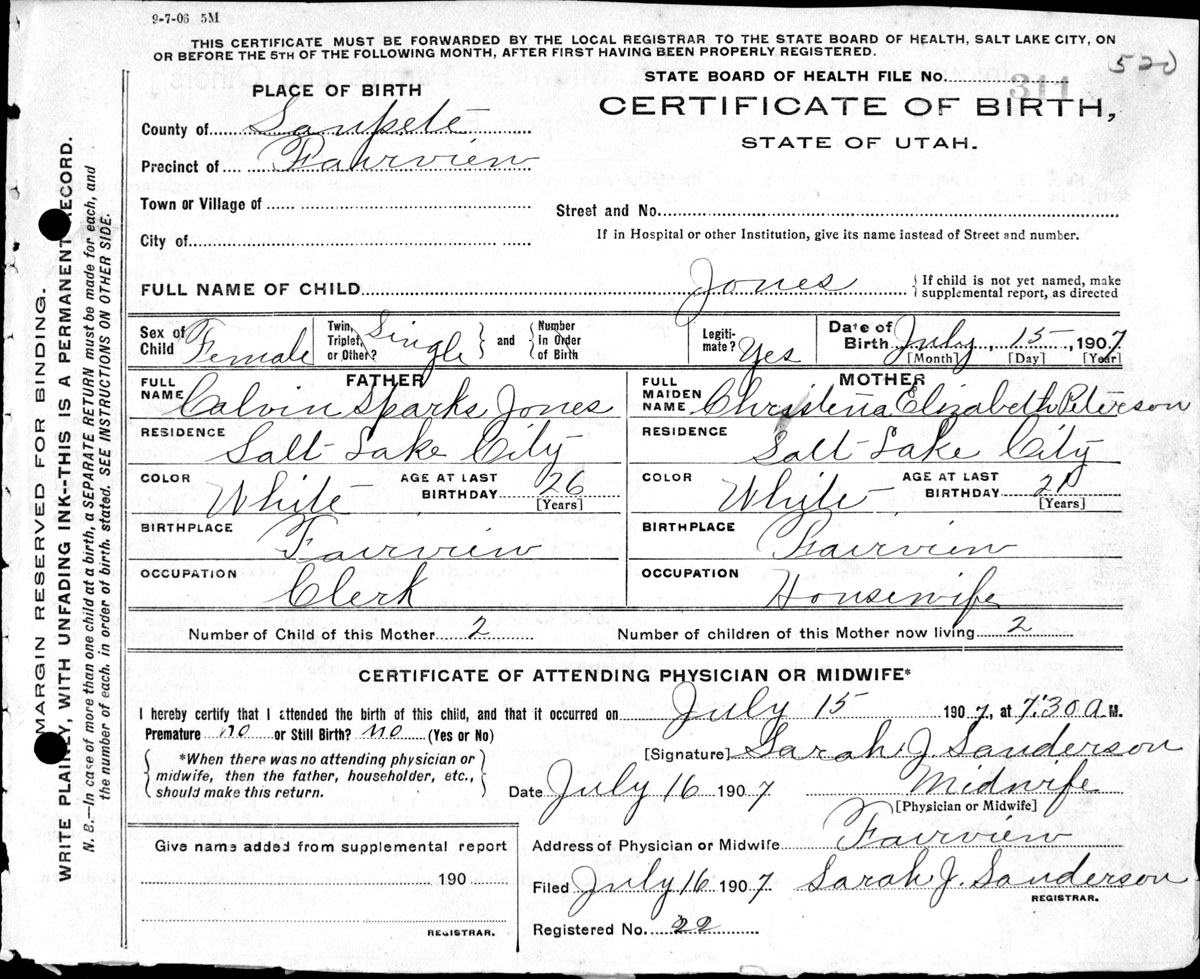 9-7-06 5M
THIS CERTIFICATE MUST BE FORWARDED BY THE LOCAL REGISTRAR TO THE STATE BOARD OF HEALTH, SALT LAKE CITY, ON
OR BEFORE THE 5TH OF THE FOLLOWING MONTH, AFTER FIRST HAVING BEEN PROPERLY REGISTERED.
520
STATE BOARD OF HEALTH FILE No. 311
CERTIFICATE OF BIRTH,
STATE OF UTAH.
PLACE OF BIRTH
County of Sanpete
Precinct of Fairview
Town or Village of
City of
Street and No.
If in Hospital or other Institution, give its name instead of Street and number.
FULL NAME OF CHILD Jones
If child is not yet named, make
supplemental report, as directed
Sex of Child Female
Twin, Triplet, or Other? Single
and
Number In Order of Birth
Legiti-mate? Yes
Date of Birth July 15, 1907
[Month] [Day] [Year]
FATHER
FULL NAME Calvin Sparks Jones
RESIDENCE Salt Lake City
COLOR White AGE AT LAST BIRTHDAY 26
[Years]
BIRTHPLACE Fairview
OCCUPATION Clerk
MOTHER
FULL MAIDEN NAME Christena Elizabeth Peterson
RESIDENCE Salt Lake City
COLOR White AGE AT LAST BIRTHDAY 21
[Years]
BIRTHPLACE Fairview
OCCUPATION Housewife
Number of Child of this Mother 2 Number of children of this Mother now living 2
CERTIFICATE OF ATTENDING PHYSICIAN OR MIDWIFE*
I hereby certify that I attended the birth of this child, and that it occurred on July 15 1907, at 7:30 A.M.
Premature no or Still Birth? no (Yes or No)
*When there was no attending physician or
midwife, then the father, householder, etc.,
should make this return.
[Signature] Sarah J. Sanderson
Date July 16 1907 Midwife
[Physician or Midwife]
Address of Physician or Midwife Fairview
Filed July 16 1907 Sarah J. Sanderson
REGISTRAR.
Registered No. 22
Give name added from supplemental report
190
REGISTRAR.
MARGIN RESERVED FOR BINDING.
WRITE PLAINLY, WITH UNFADING INK--THIS IS A PERMANENT RECORD.
N. B.—In case of more than one child at a birth, a SEPARATE RETURN must be made for each, and
the number of each, in order of birth, stated. SEE INSTRUCTIONS ON OTHER SIDE.